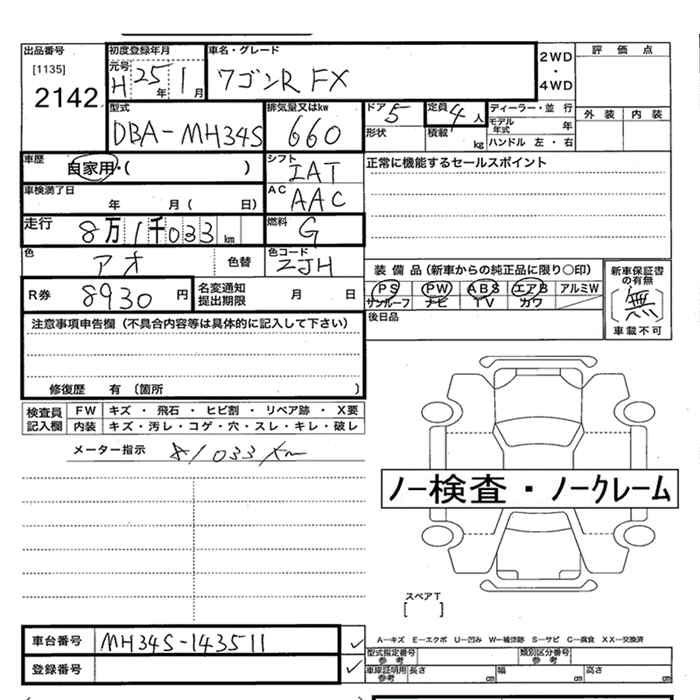 出品番号 初度登録年月 車名・グレード 2WD・4WD 評価点
[1135] 元号 H 25年 1月 ワゴンR FX
2142
型式 排気量又はkw ドア 5 定員 4人 ディーラー・並行
DBA-MH34S 660 形状 積載 kg モデル年式 年 外装 内装
ハンドル 左・右
車歴 自家用・( ) シフト IAT 正常に機能するセールスポイント
車検満了日 AC AAC
年 月( 日)
走行 8万1千033km 燃料 G
色 アオ 色替 色コード ZJH
装備品(新車からの純正品に限り○印) 新車保証書の有無
R券 8930円 名変通知提出期限 月 日 PS PW ABS エアB アルミW [無]
サンルーフ ナビ TV カワ 車載不可
注意事項申告欄(不具合内容等は具体的に記入して下さい) 後日品
修復歴 有(箇所 )
検査員記入欄 FW キズ・飛石・ヒビ割・リペア跡・X要
内装 キズ・汚レ・コゲ・穴・スレ・キレ・破レ
メーター指示 81033km
ノー検査・ノークレーム
スペアT
[ ]
A−キズ E−エクボ U−凹み W−補修跡 S−サビ C−腐食 XX−交換済
車台番号 MH34S-143511 ✓ 型式指定番号 参考 類別区分番号 参考
登録番号 ✓ 車庫証明用 参考 長さ cm 幅 cm 高さ cm